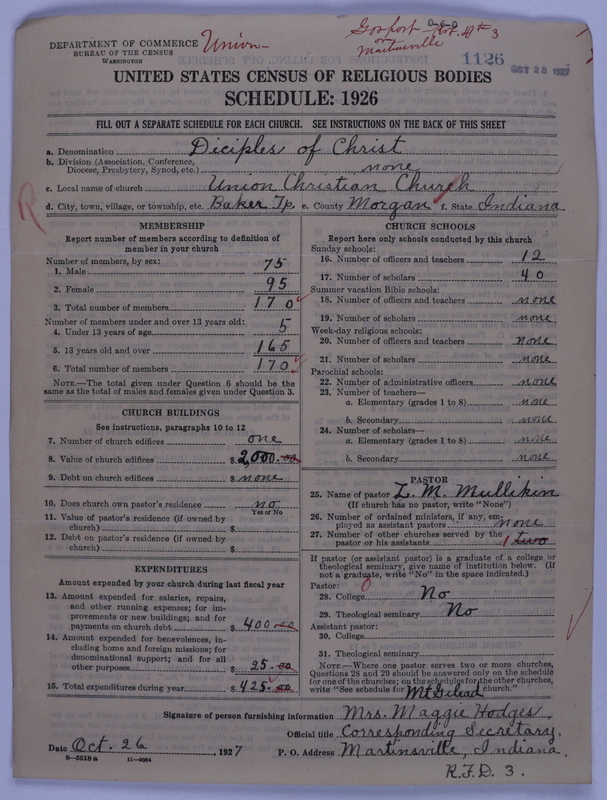 0-6-0
Gosport Rt. #3
or
Martinsville
Union-
DEPARTMENT OF COMMERCE
BUREAU OF THE CENSUS
WASHINGTON
1126
OCT 28 1927
UNITED STATES CENSUS OF RELIGIOUS BODIES
SCHEDULE: 1926
FILL OUT A SEPARATE SCHEDULE FOR EACH CHURCH. SEE INSTRUCTIONS ON THE BACK OF THIS SHEET
a. Denomination Diciples of Christ
b. Division (Association, Conference,
Diocese, Presbytery, Synod, etc.) none
c. Local name of church Union Christian Church
d. City, town, village, or township, etc. Baker Tp. e. County Morgan f. State Indiana
R
MEMBERSHIP
Report number of members according to definition of
member in your church
Number of members, by sex:
1. Male 75
2. Female 95
3. Total number of members 170
Number of members under and over 13 years old:
4. Under 13 years of age 5
5. 13 years old and over 165
6. Total number of members 170
NOTE.—The total given under Question 6 should be the
same as the total of males and females given under Question 3.
CHURCH BUILDINGS
See instructions, paragraphs 10 to 12
7. Number of church edifices one
8. Value of church edifices $ 2,000.00
9. Debt on church edifices $ none
10. Does church own pastor's residence no
Yes or No
11. Value of pastor's residence (if owned by
church) $
12. Debt on pastor's residence (if owned by
church) $
EXPENDITURES
Amount expended by your church during last fiscal year
13. Amount expended for salaries, repairs,
and other running expenses; for im-
provements or new buildings; and for
payments on church debt $ 400.00
14. Amount expended for benevolences, in-
cluding home and foreign missions; for
denominational support; and for all
other purposes $ 25.00
15. Total expenditures during year $ 425.00
CHURCH SCHOOLS
Report here only schools conducted by this church
Sunday schools:
16. Number of officers and teachers 12
17. Number of scholars 40
Summer vacation Bible schools:
18. Number of officers and teachers none
19. Number of scholars none
Week-day religious schools:
20. Number of officers and teachers none
21. Number of scholars none
Parochial schools:
22. Number of administrative officers none
23. Number of teachers—
a. Elementary (grades 1 to 8) none
b. Secondary none
24. Number of scholars—
a. Elementary (grades 1 to 8) none
b. Secondary none
PASTOR
25. Name of pastor L. M. Mullikin
(If church has no pastor, write "None")
26. Number of ordained ministers, if any, em-
ployed as assistant pastors none
27. Number of other churches served by the
pastor or his assistants 1 two
If pastor (or assistant pastor) is a graduate of a college or
theological seminary, give name of institution below. (If
not a graduate, write "No" in the space indicated.)
Pastor: 0
28. College No
29. Theological seminary No
Assistant pastor:
30. College
31. Theological seminary
NOTE.—Where one pastor serves two or more churches,
Questions 28 and 29 should be answered only on the schedule
for one of the churches; on the schedules for the other churches,
write "See schedule for Mt Gilead church."
Signature of person furnishing information Mrs. Maggie Hodges,
Official title Corresponding Secretary,
Date Oct. 26, 1927 P. O. Address Martinsville, Indiana.
8-5518 a 11-9054
R.F.D. 3.